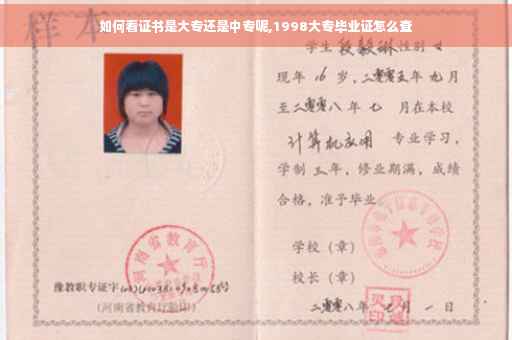 如何看证书是大专还是中专呢,1998大专毕业证怎么查
样本
学生 段毅琳 性别 女
现年 16 岁,二零零五年 九月
至二零零八年 七 月在本校
计算机应用 专业学习,
学制 三 年,修业期满,成绩
合格,准予毕业
学校(章)
校长(章)
二零零八年 七月 一日
河南省教育厅
豫教职专证字
(河南省教育厅验印)